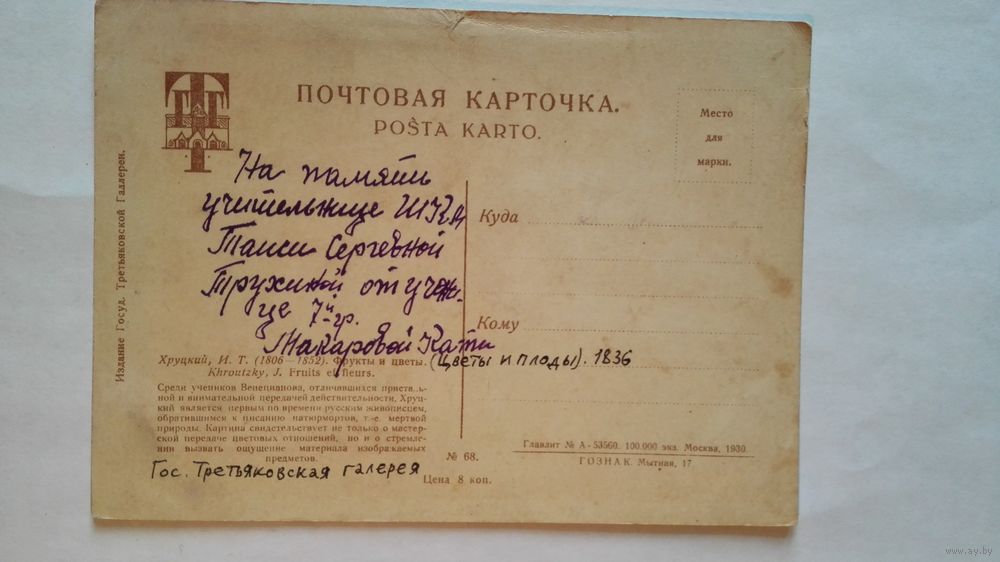 ПОЧТОВАЯ КАРТОЧКА.
POŜTA KARTO.
Место
для
марки.
Издание Госуд. Третьяковской Галлереи.
На памяти
учительнице ШКМ
Таиси Сергевной
Трухиной от учени-
це 7й гр.
Макаровой Кати
Куда
Кому
Хруцкий, И. Т. (1806—1852). Фрукты и цветы. (Цветы и плоды). 1836
Khroutzky, J. Fruits et fleurs.
Среди учеников Венецианова, отличавшихся присталь-
ной и внимательной передачей действительности, Хруц-
кий является первым по времени русским живописцем,
обратившимся к писанию натюрмортов, т.-е. мертвой
природы. Картина свидетельствует не только о мастер-
ской передаче цветовых отношений, но и о стремле-
нии вызвать ощущение материала изображаемых
предметов.
Гос. Третьяковская галерея
№ 68.
Цена 8 коп.
Главлит № А-53560. 100.000 экз. Москва, 1930.
ГОЗНАК. Мытная, 17
www.ay.by